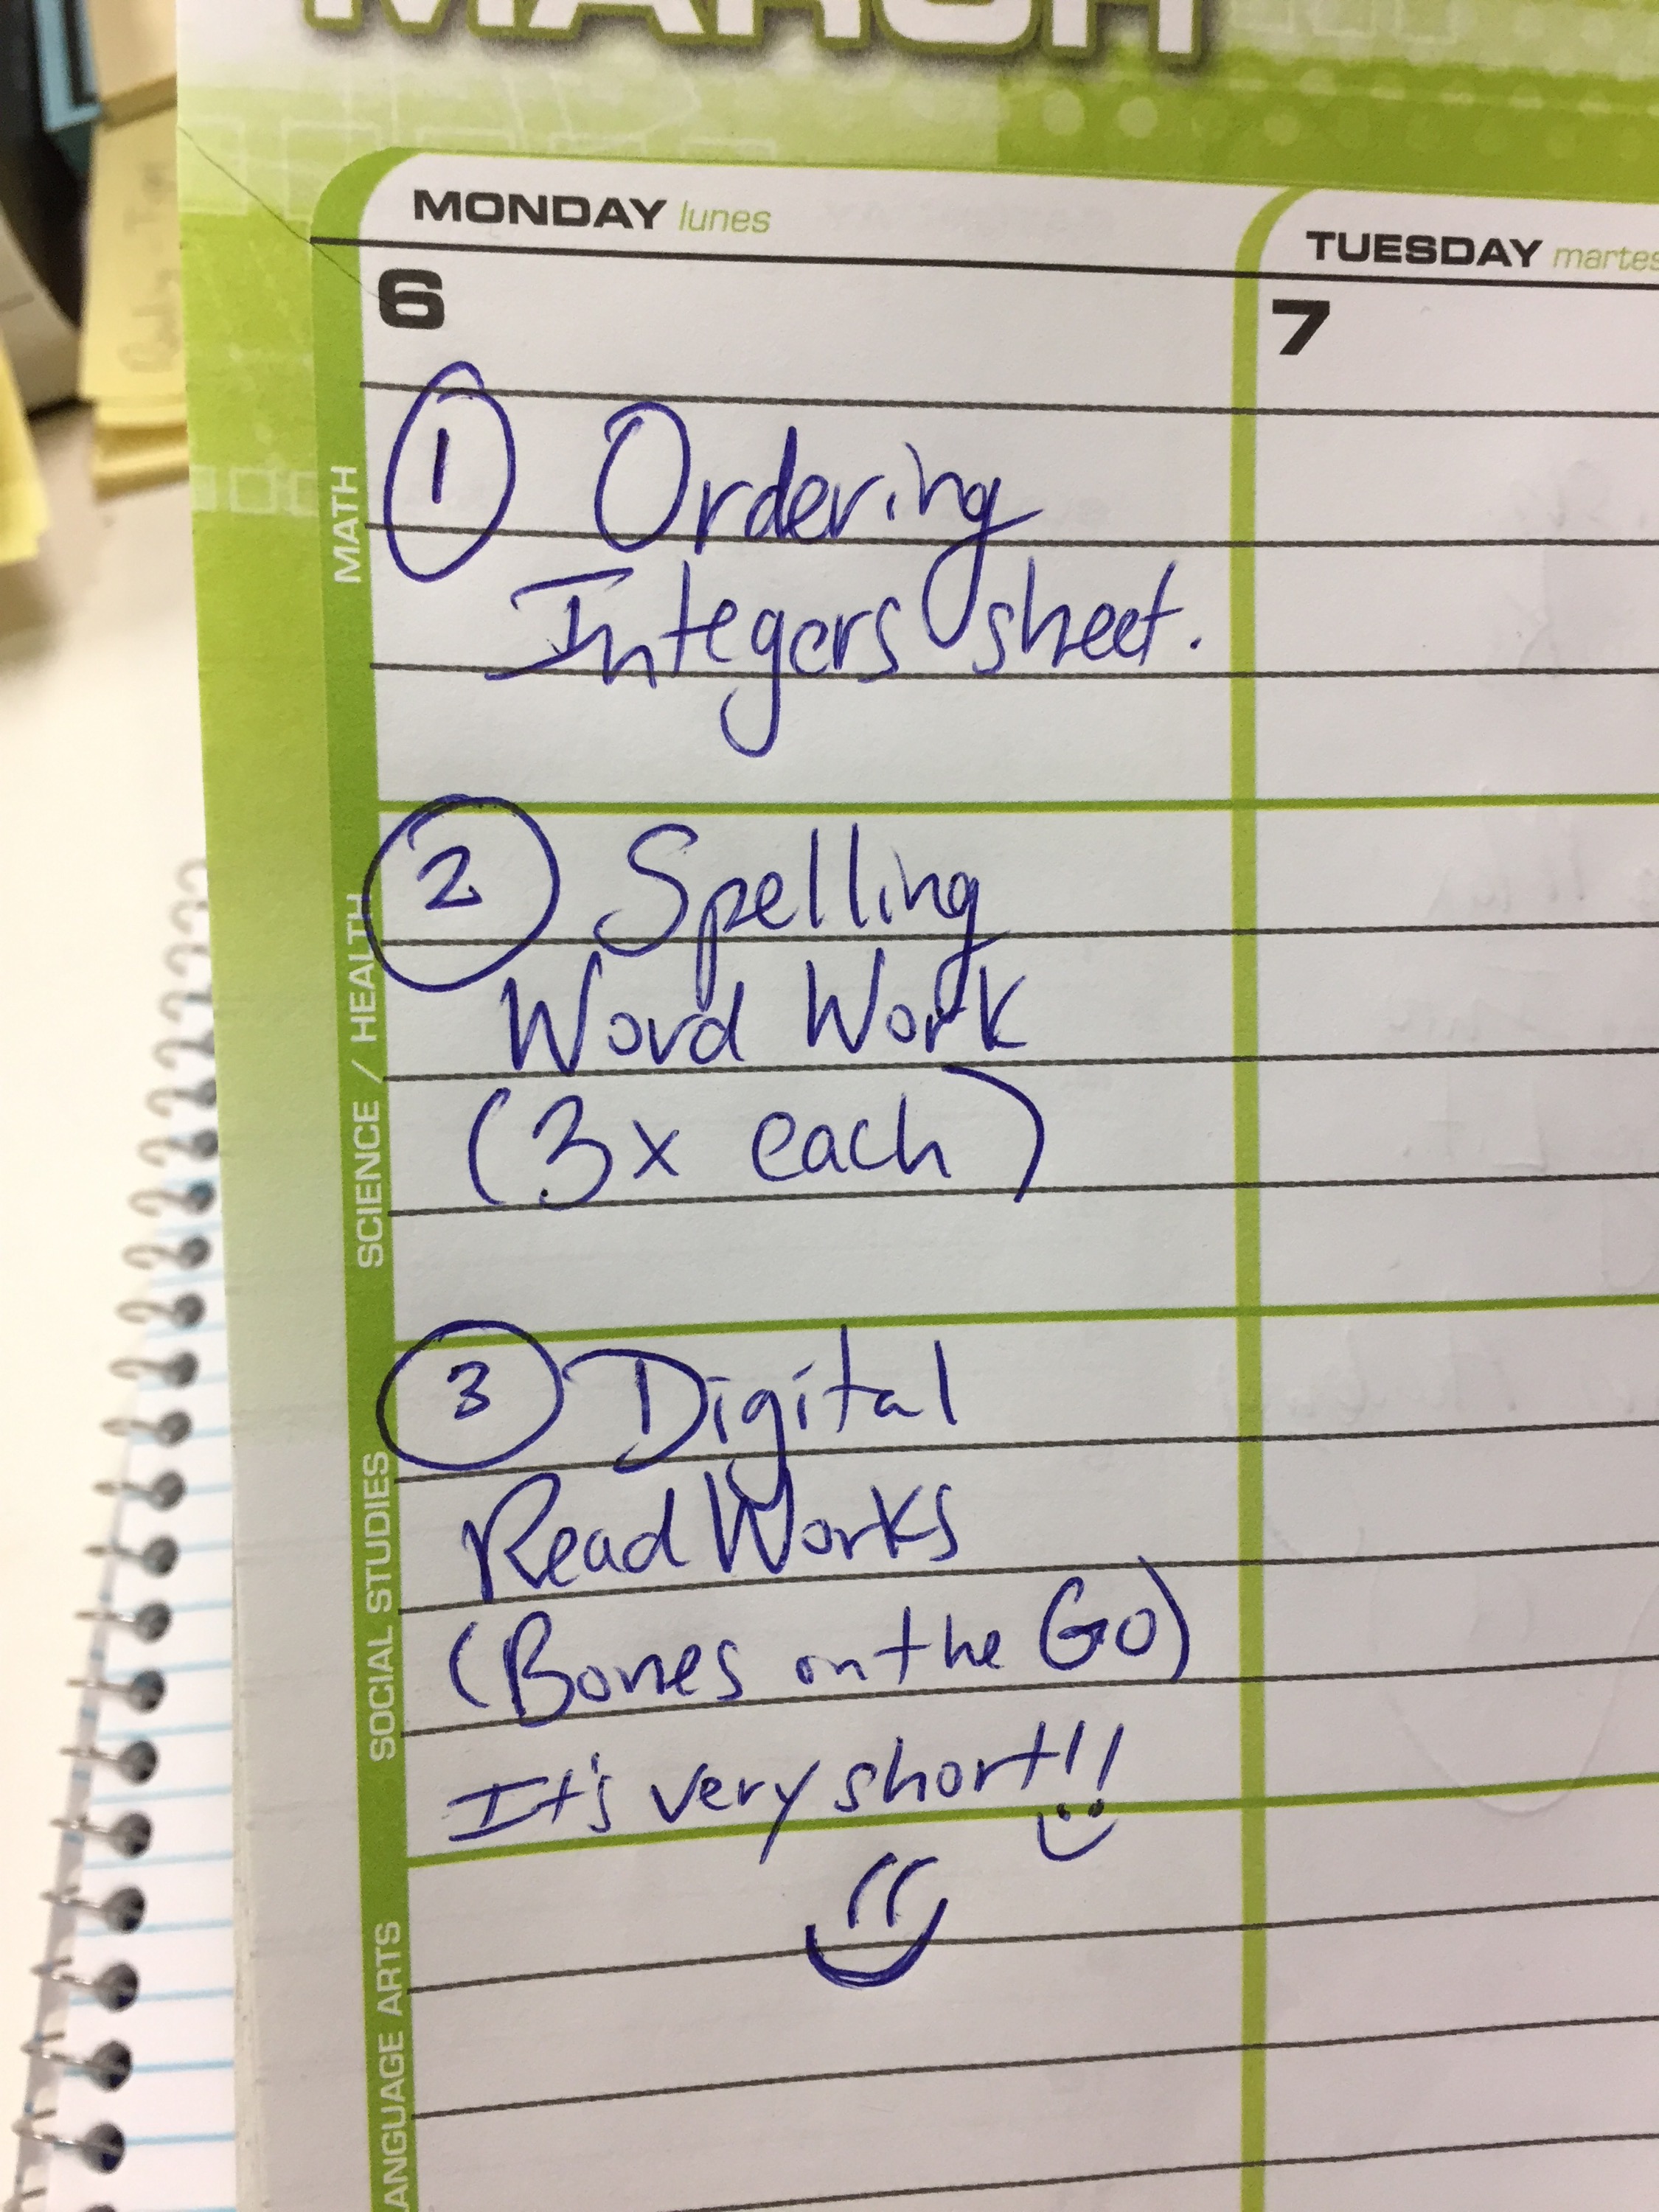 MARCH
MONDAY lunes
TUESDAY martes
6
7
MATH
① Ordering
Integers sheet.
SCIENCE / HEALTH
② Spelling
Word Work
(3x each)
SOCIAL STUDIES
③ Digital
ReadWorks
(Bones on the Go)
It's very short!!
LANGUAGE ARTS